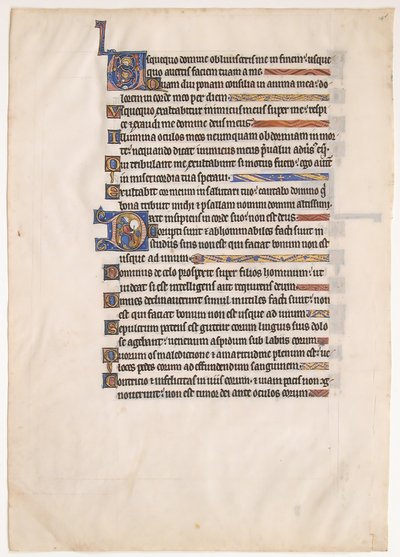 Usquequo domine oblivisceris me in finem: usque
quo avertis faciem tuam a me.
Quam diu ponam consilia in anima mea: do
lorem in corde meo per diem.
Usquequo exaltabitur inimicus meus super me: respi
ce & exaudi me domine deus meus.
Illumina oculos meos ne umquam obdormiam in mor
te: nequando dicat inimicus meus p̄valui adūs eū.
Qui tribulant me exultabunt si motus fuero: ego aut̄
in misericordia tua speravi.
Exultabit cor meum in salutari tuo: cantabo domino q̄
bona tribuit michi & psallam nomini domini altissimi.
Dixit insipiens in corde suo: non est deus.
Corrupti sunt & abhominabiles facti sunt in
studiis suis non est qui faciat bonum non est
usque ad unum.
Dominus de celo prospexit super filios hominum: ut
videat si est intelligens aut requirens deum.
Omnes declinaverunt simul inutiles facti sunt: non
est qui faciat bonum non est usque ad unum.
Sepulcrum patens est guttur eorum linguis suis dolo
se agebant: venenum aspidum sub labiis eorum.
Quorum os maledictione & amaritudine plenum est: ve
loces pedes eorum ad effundendum sanguinem.
Contricio & infelicitas in viis eorum & viam pacis non cog
noverunt: non est timor dei ante oculos eorum.